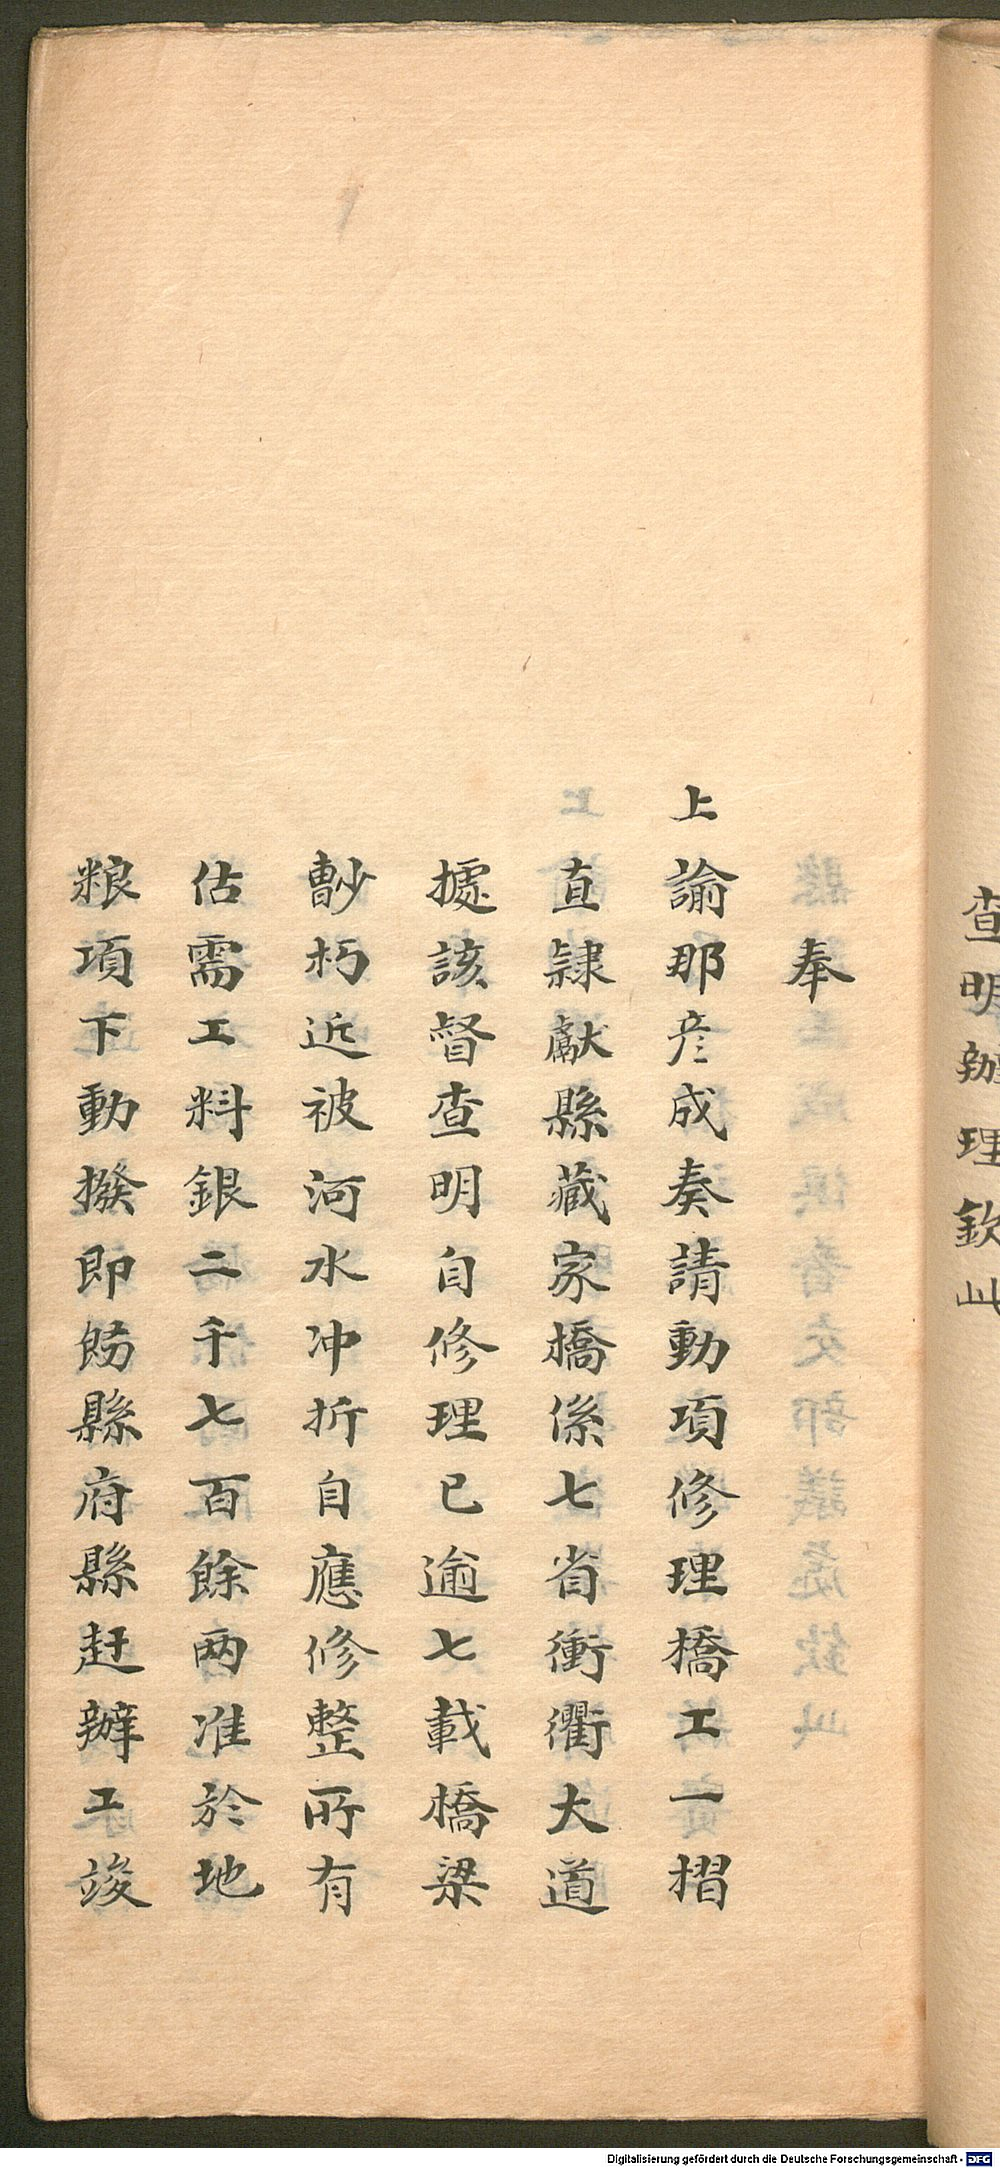 查明辦理欽此
奉
上諭那彦成奏請動項修理橋工一摺
直隸獻縣藏家橋係七省衝衢大道
據該督查明自修理已逾七載橋梁
朽近被河水冲折自應修整所有
估需工料銀二千七百餘两准於地
粮項下動撥即飭縣府縣赶辦工竣
Digitalisierung gefördert durch die Deutsche Forschungsgemeinschaft - DFG